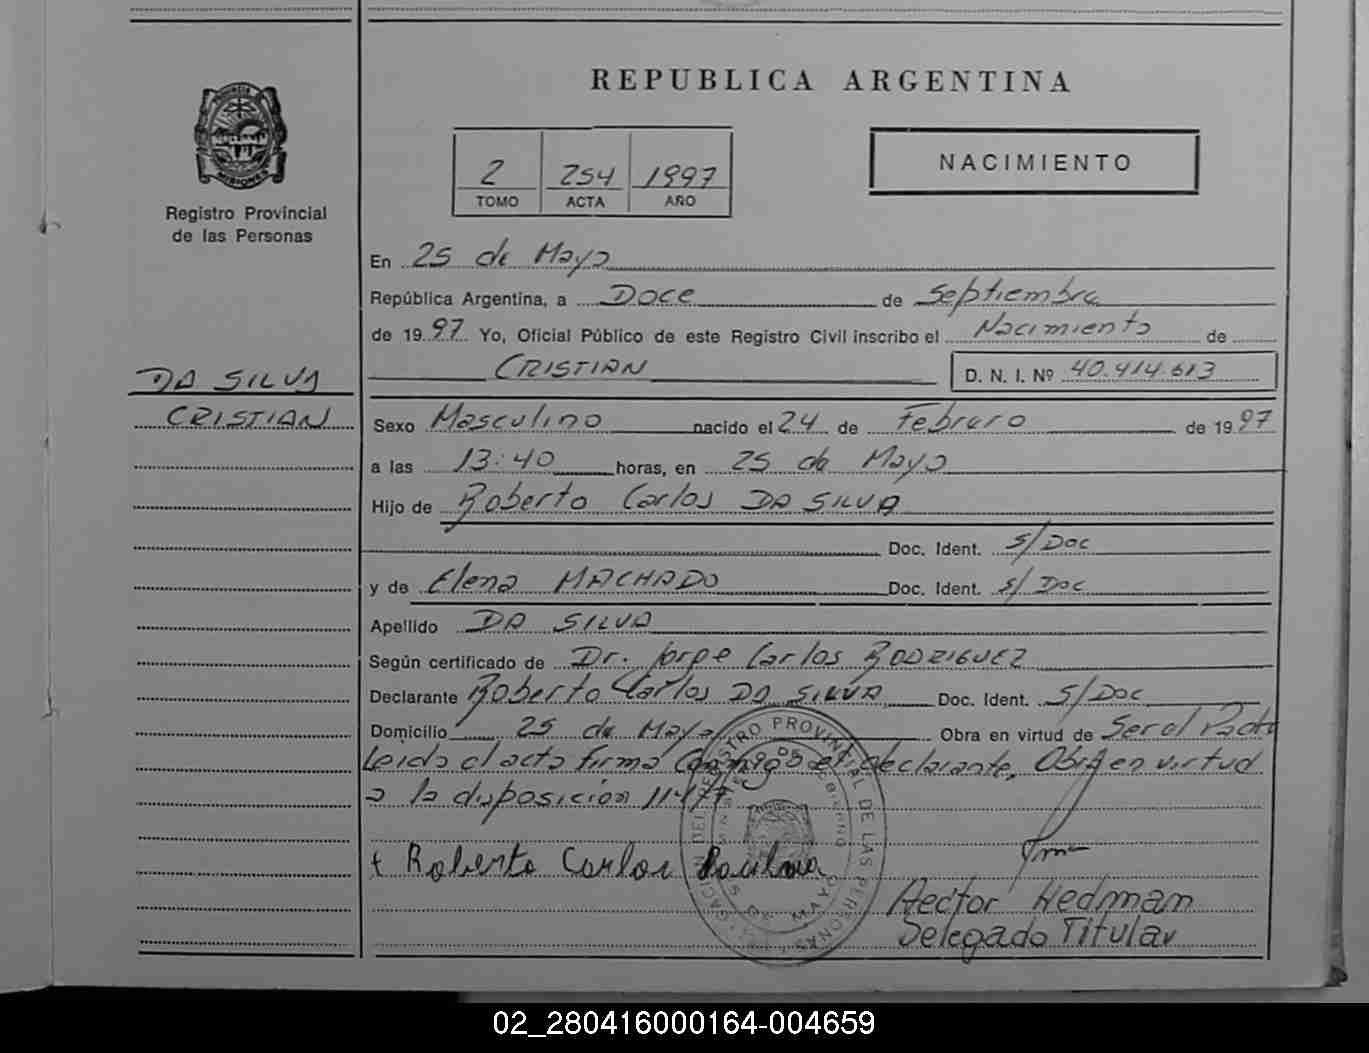 REPUBLICA ARGENTINA
PROVINCIA DE
MISIONES
Registro Provincial
de las Personas
NACIMIENTO
2 254 1997
TOMO ACTA AÑO
En 25 de Mayo
República Argentina, a Doce de Septiembre
de 1997 Yo, Oficial Público de este Registro Civil inscribo el Nacimiento de
CRISTIAN D. N. I. Nº 40.414.613
DA SILVA
CRISTIAN
Sexo Masculino nacido el 24 de Febrero de 1997
a las 13:40 horas, en 25 de Mayo
Hijo de Roberto Carlos DA SILVA
Doc. Ident. S/Doc
y de Elena MACHADO Doc. Ident. S/Doc
Apellido DA SILVA
Según certificado de Dr. Jorge Carlos RODRIGUEZ
Declarante Roberto Carlos DA SILVA Doc. Ident. S/Doc
Domicilio 25 de Mayo Obra en virtud de Ser el Padre
Leida el acta firma Conmigo el declarante. Obra en virtud
a la disposición 11477
Roberto Carlos Dasilva
REGISTRO PROVINCIAL DE LAS PERSONAS
Hector Hedman
Delegado Titular
02_280416000164-004659